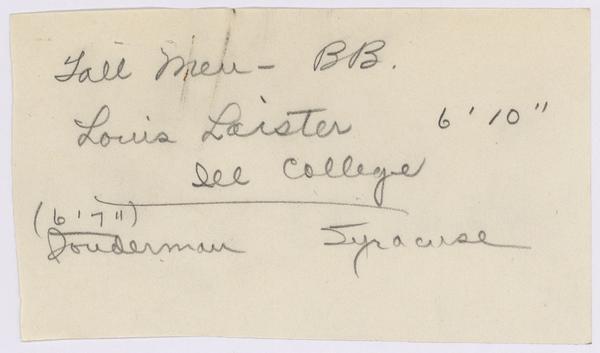 Tall Men - BB.
Louis Laister 6'10"
Ill College
(6'7")
Souderman Syracuse